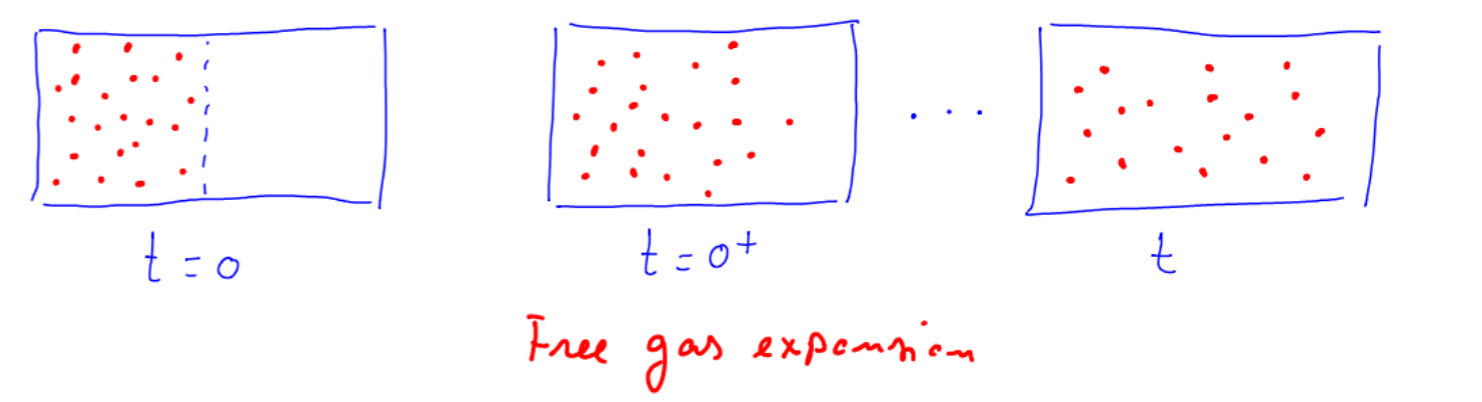 t = 0
t = 0⁺
. . .
t
Free gas expansion